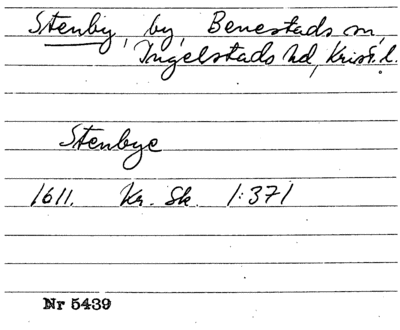 Stenby, by, Benestads sn,
Ingelstads hd, Krist. l.
Stenbye
1611. Kr. Sk. 1:371
Nr 5439